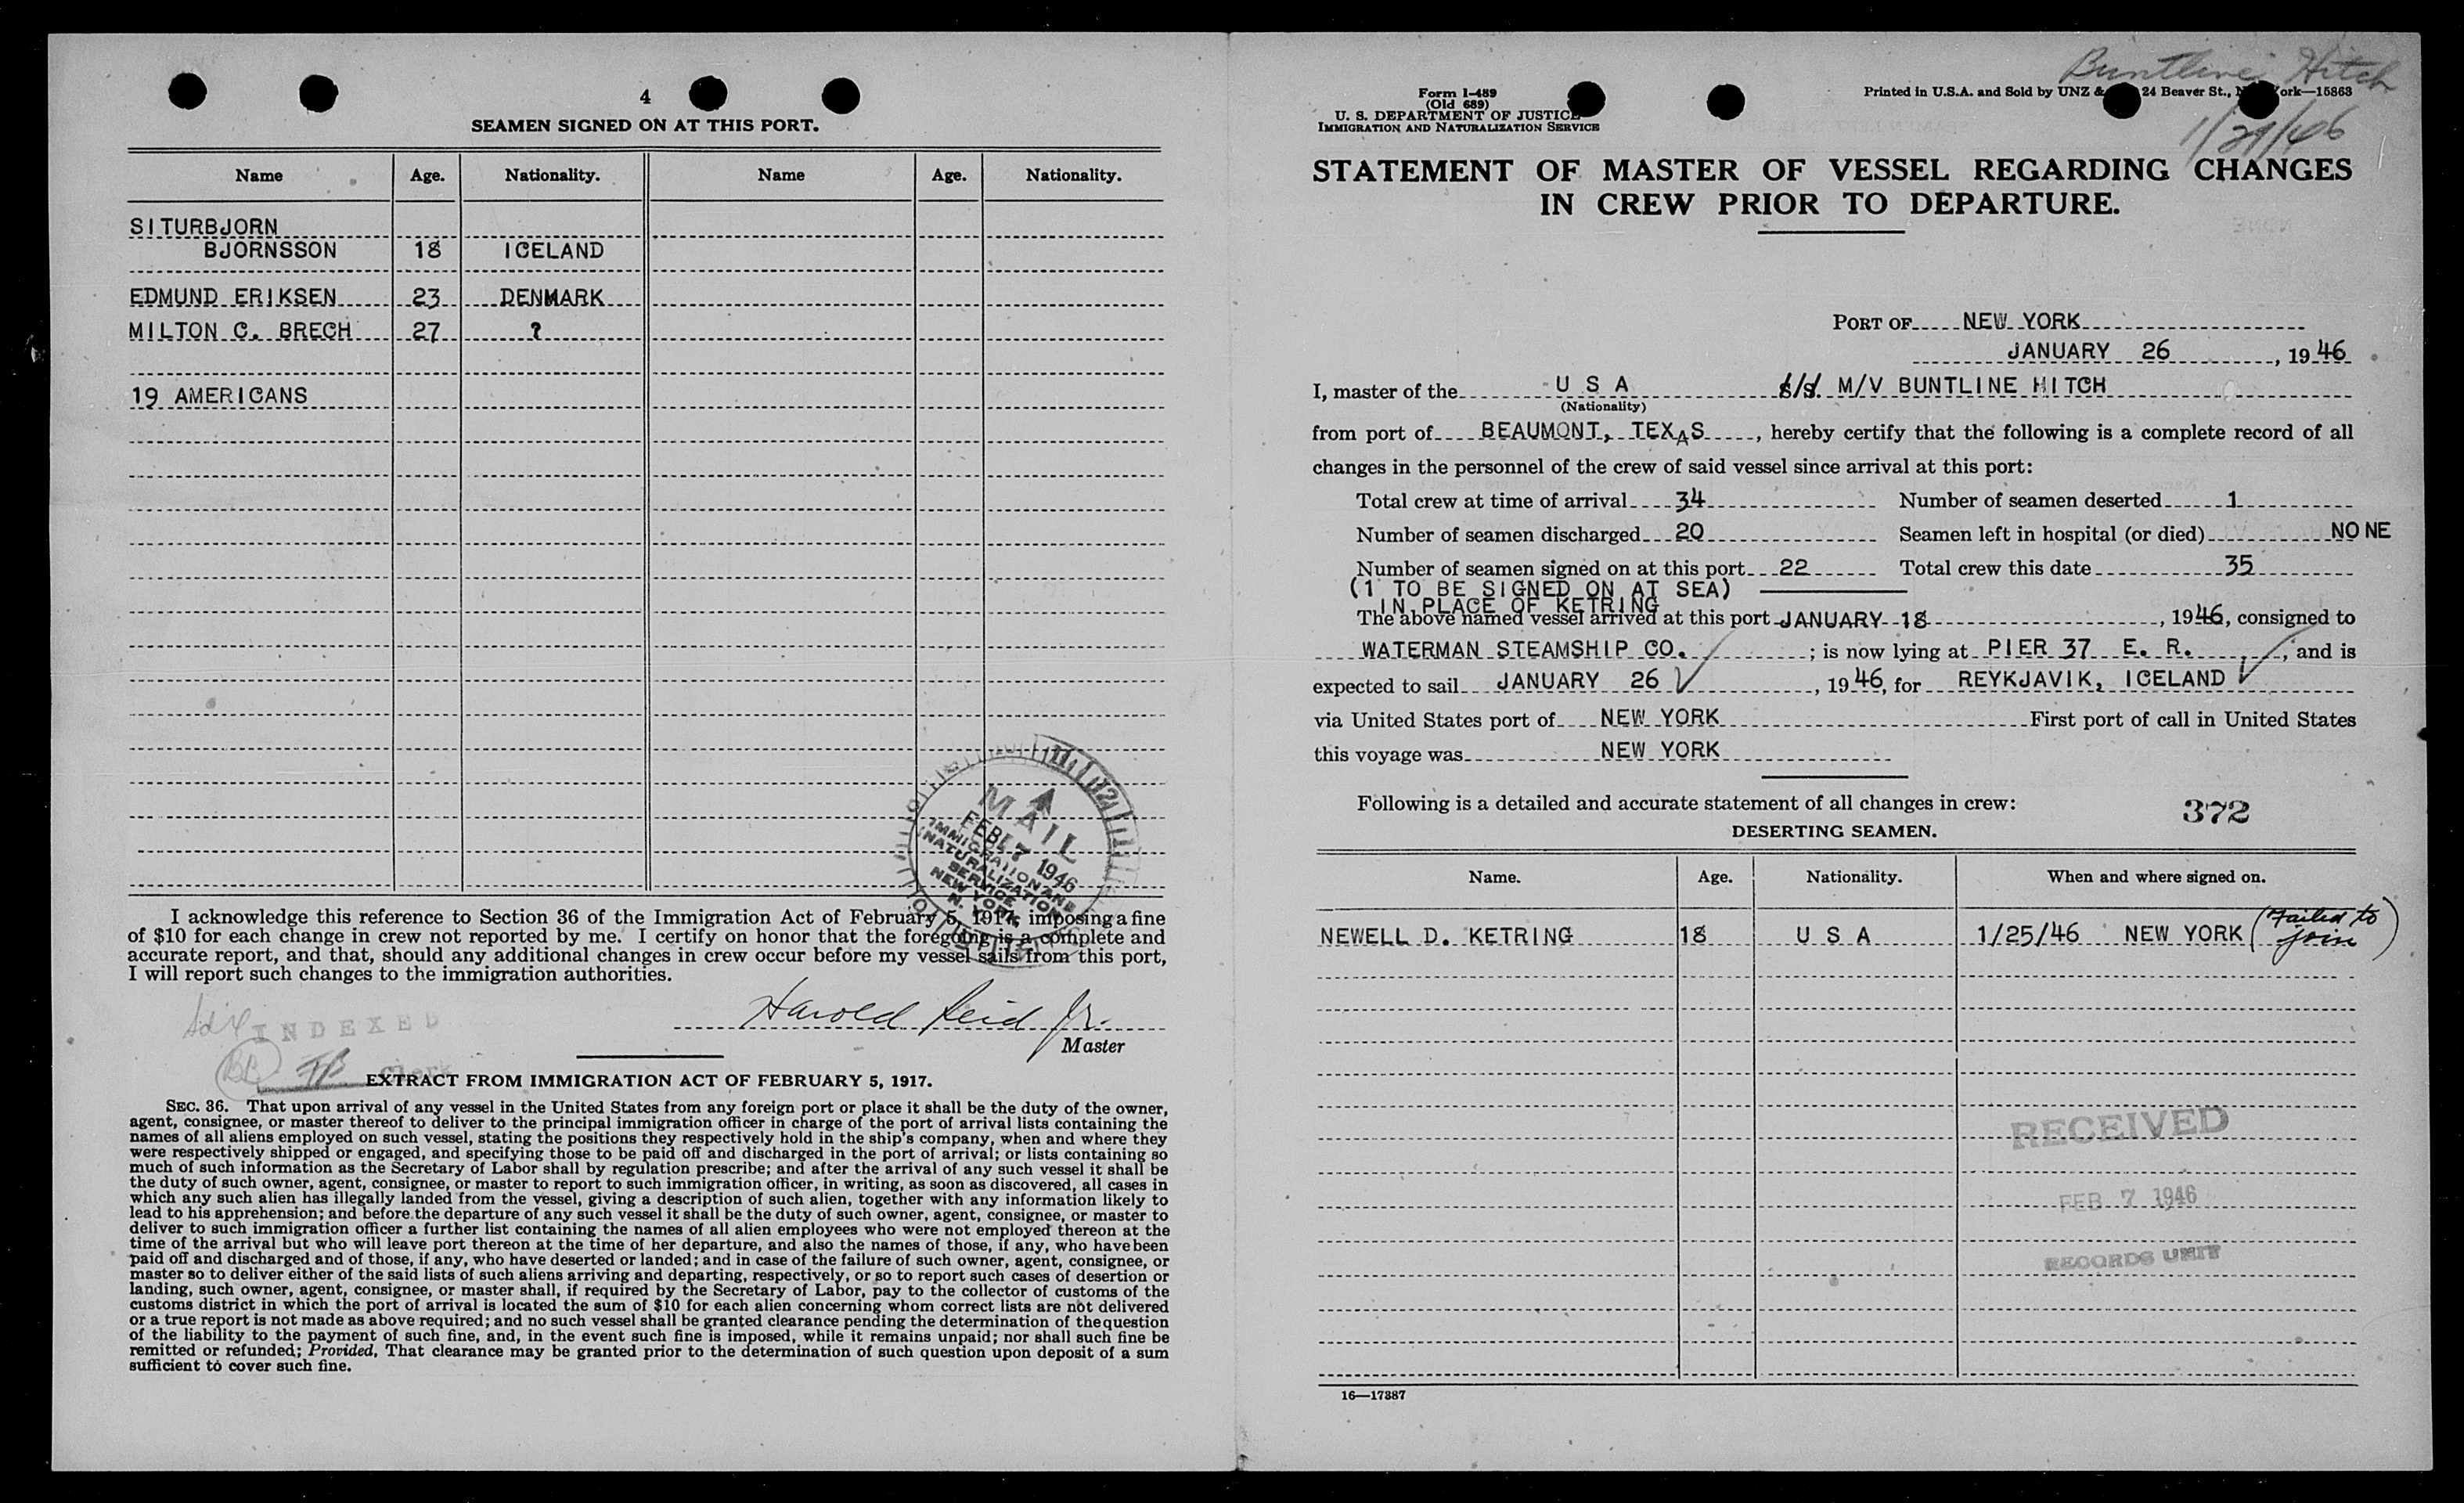 4
SEAMEN SIGNED ON AT THIS PORT.
Name Age. Nationality. Name Age. Nationality.
SITURBJORN
BJORNSSON 18 ICELAND
EDMUND ERIKSEN 23 DENMARK
MILTON C. BRECH 27 ?
19 AMERICANS
MAIL
FEB 7 1946
IMMIGRATION AND
NATURALIZATION
SERVICE
NEW YORK
N. Y.
I acknowledge this reference to Section 36 of the Immigration Act of February 5, 1917, imposing a fine
of $10 for each change in crew not reported by me. I certify on honor that the foregoing is a complete and
accurate report, and that, should any additional changes in crew occur before my vessel sails from this port,
I will report such changes to the immigration authorities.
INDEXED
Harold Reid Jr.
Master
Clerk
EXTRACT FROM IMMIGRATION ACT OF FEBRUARY 5, 1917.
SEC. 36. That upon arrival of any vessel in the United States from any foreign port or place it shall be the duty of the owner,
agent, consignee, or master thereof to deliver to the principal immigration officer in charge of the port of arrival lists containing the
names of all aliens employed on such vessel, stating the positions they respectively hold in the ship's company, when and where they
were respectively shipped or engaged, and specifying those to be paid off and discharged in the port of arrival; or lists containing so
much of such information as the Secretary of Labor shall by regulation prescribe; and after the arrival of any such vessel it shall be
the duty of such owner, agent, consignee, or master to report to such immigration officer, in writing, as soon as discovered, all cases in
which any such alien has illegally landed from the vessel, giving a description of such alien, together with any information likely to
lead to his apprehension; and before the departure of any such vessel it shall be the duty of such owner, agent, consignee, or master to
deliver to such immigration officer a further list containing the names of all alien employees who were not employed thereon at the
time of the arrival but who will leave port thereon at the time of her departure, and also the names of those, if any, who have been
paid off and discharged and of those, if any, who have deserted or landed; and in case of the failure of such owner, agent, consignee, or
master so to deliver either of the said lists of such aliens arriving and departing, respectively, or so to report such cases of desertion or
landing, such owner, agent, consignee, or master shall, if required by the Secretary of Labor, pay to the collector of customs of the
customs district in which the port of arrival is located the sum of $10 for each alien concerning whom correct lists are not delivered
or a true report is not made as above required; and no such vessel shall be granted clearance pending the determination of the question
of the liability to the payment of such fine, and, in the event such fine is imposed, while it remains unpaid; nor shall such fine be
remitted or refunded; Provided, That clearance may be granted prior to the determination of such question upon deposit of a sum
sufficient to cover such fine.
Buntline Hitch
Form I-489
(Old 689)
U. S. DEPARTMENT OF JUSTICE
IMMIGRATION AND NATURALIZATION SERVICE
Printed in U.S.A. and Sold by UNZ & 24 Beaver St., ork—15863
STATEMENT OF MASTER OF VESSEL REGARDING CHANGES
IN CREW PRIOR TO DEPARTURE.
PORT OF NEW YORK
JANUARY 26, 1946
I, master of the U S A s/s. M/V BUNTLINE HITCH
(Nationality)
from port of BEAUMONT, TEXAS, hereby certify that the following is a complete record of all
changes in the personnel of the crew of said vessel since arrival at this port:
Total crew at time of arrival 34 Number of seamen deserted 1
Number of seamen discharged 20 Seamen left in hospital (or died) NONE
Number of seamen signed on at this port 22 Total crew this date 35
(1 TO BE SIGNED ON AT SEA)
IN PLACE OF KETRING
The above named vessel arrived at this port JANUARY 18, 1946, consigned to
WATERMAN STEAMSHIP CO. ; is now lying at PIER 37 E. R. , and is
expected to sail JANUARY 26, 1946, for REYKJAVIK, ICELAND
via United States port of NEW YORK First port of call in United States
this voyage was NEW YORK
Following is a detailed and accurate statement of all changes in crew:
372
DESERTING SEAMEN.
Name. Age. Nationality. When and where signed on.
NEWELL D. KETRING 18 U S A 1/25/46 NEW YORK (Failed to
join)
RECEIVED
FEB 7 1946
RECORDS UNIT
16—17387